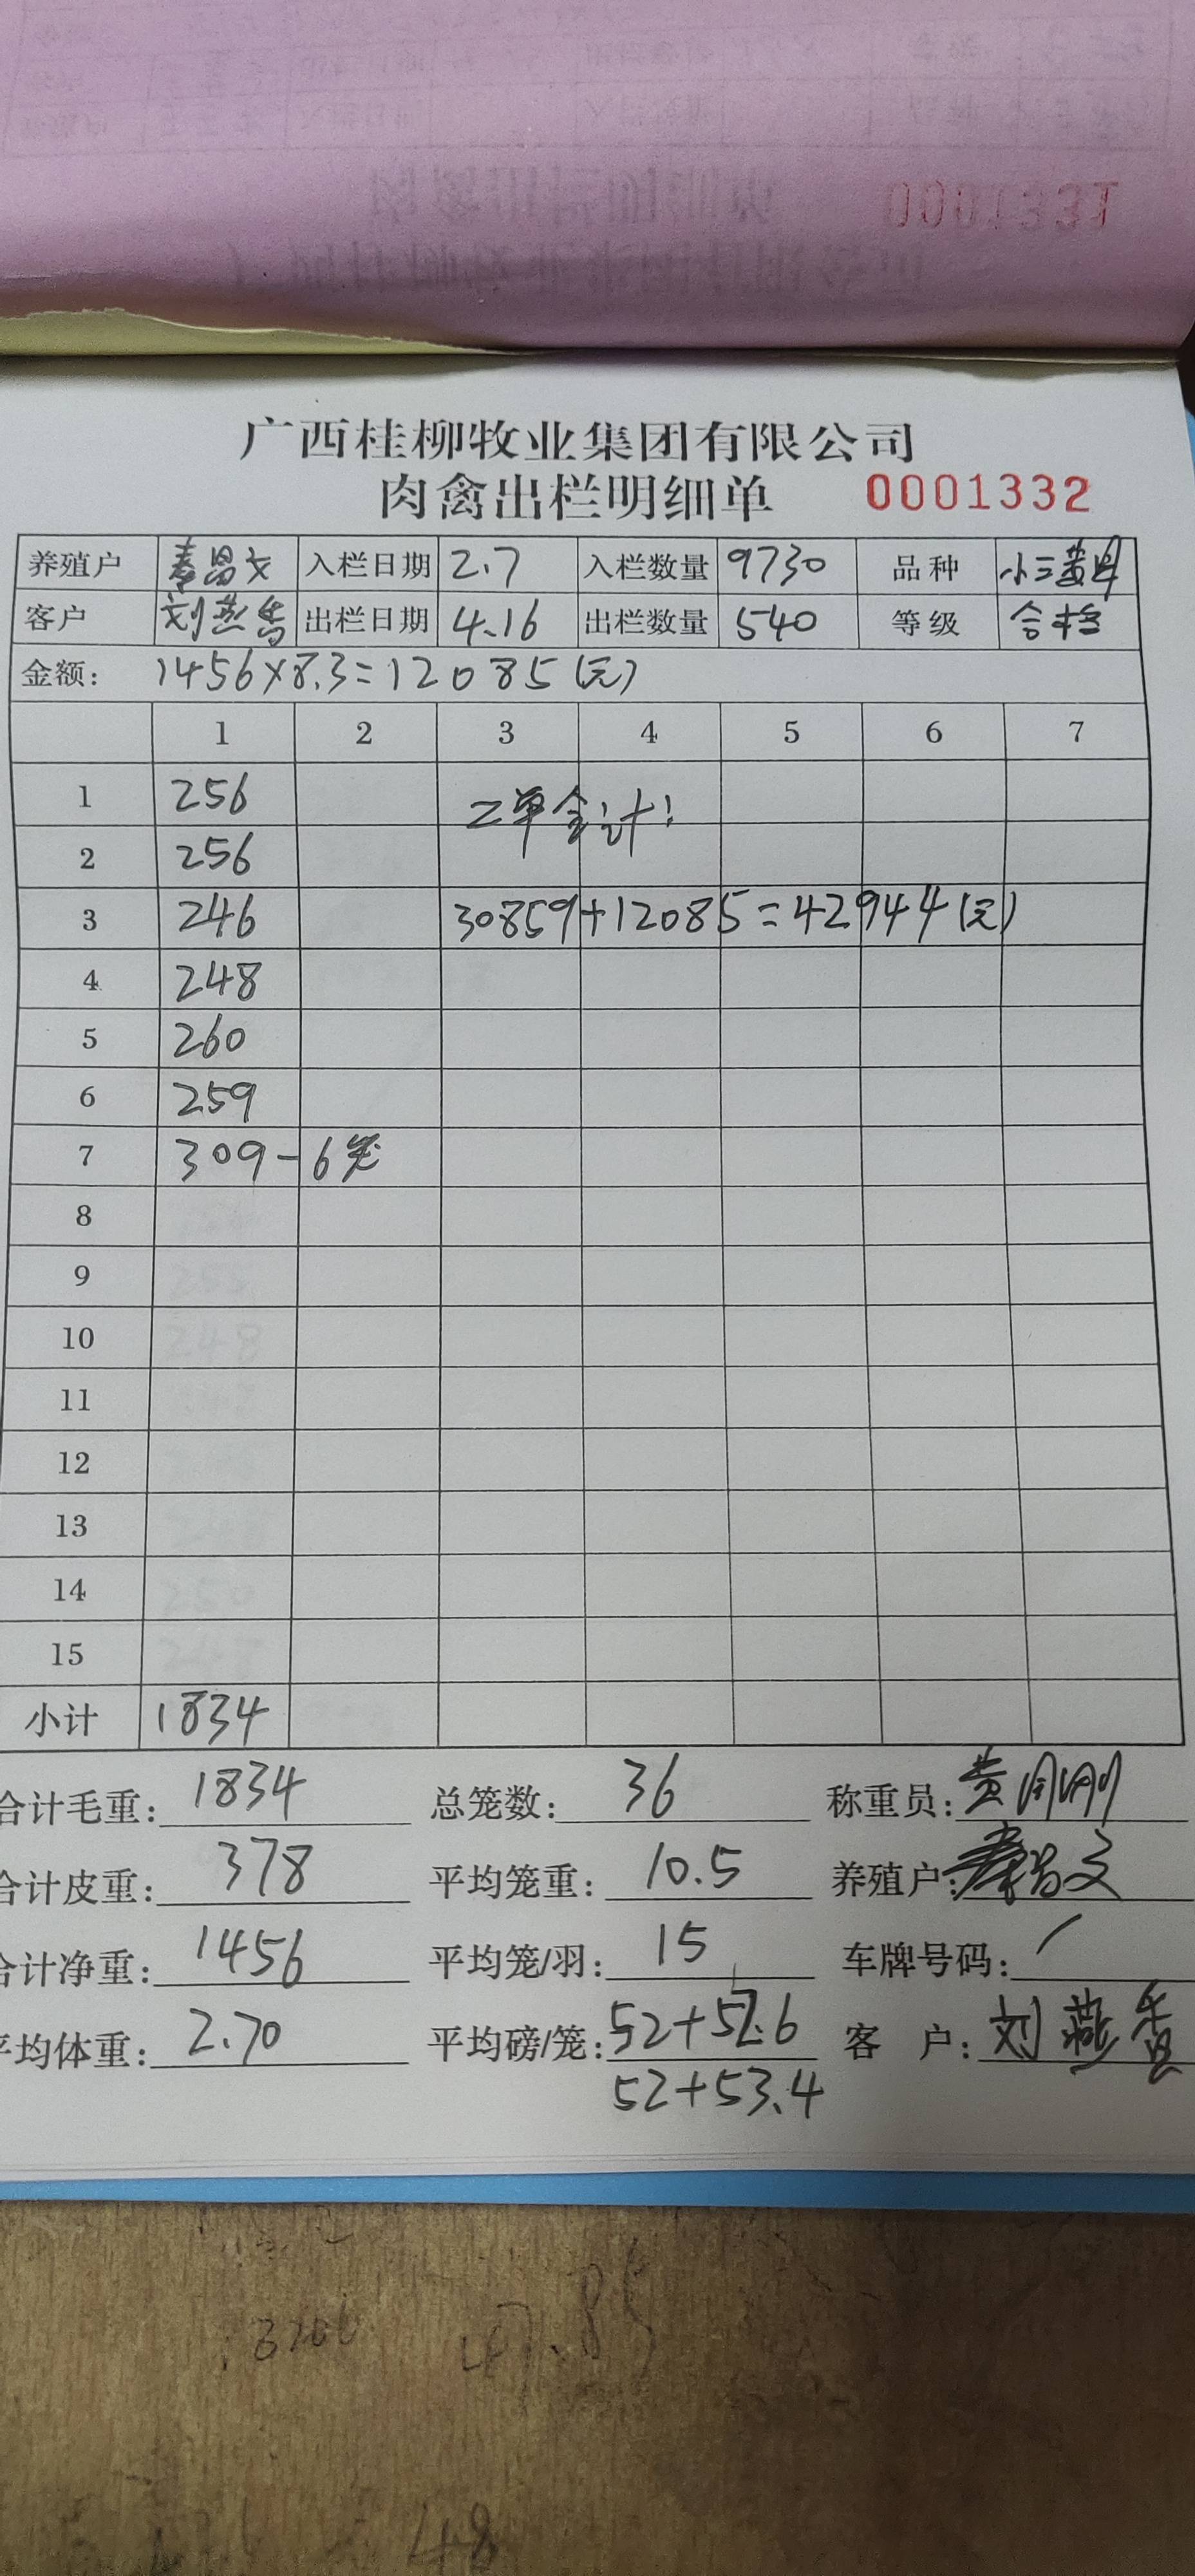 广西桂柳牧业集团有限公司
肉禽出栏明细单 0001332
养殖户 秦昌文 入栏日期 2.7 入栏数量 9730 品种 小三黄母
客户 刘燕香 出栏日期 4.16 出栏数量 540 等级 合格
金额: 1456×8.3=12085(元)
1 2 3 4 5 6 7
1 256 二单合计:
2 256
3 246 30859+12085=42944(元)
4 248
5 260
6 259
7 309-6笼
8
9
10
11
12
13
14
15
小计 1834
合计毛重: 1834 总笼数: 36 称重员: 黄刚
合计皮重: 378 平均笼重: 10.5 养殖户: 秦昌文
合计净重: 1456 平均笼/羽: 15 车牌号码: /
平均体重: 2.70 平均磅/笼: 52+52.6 客 户: 刘燕香
52+53.4